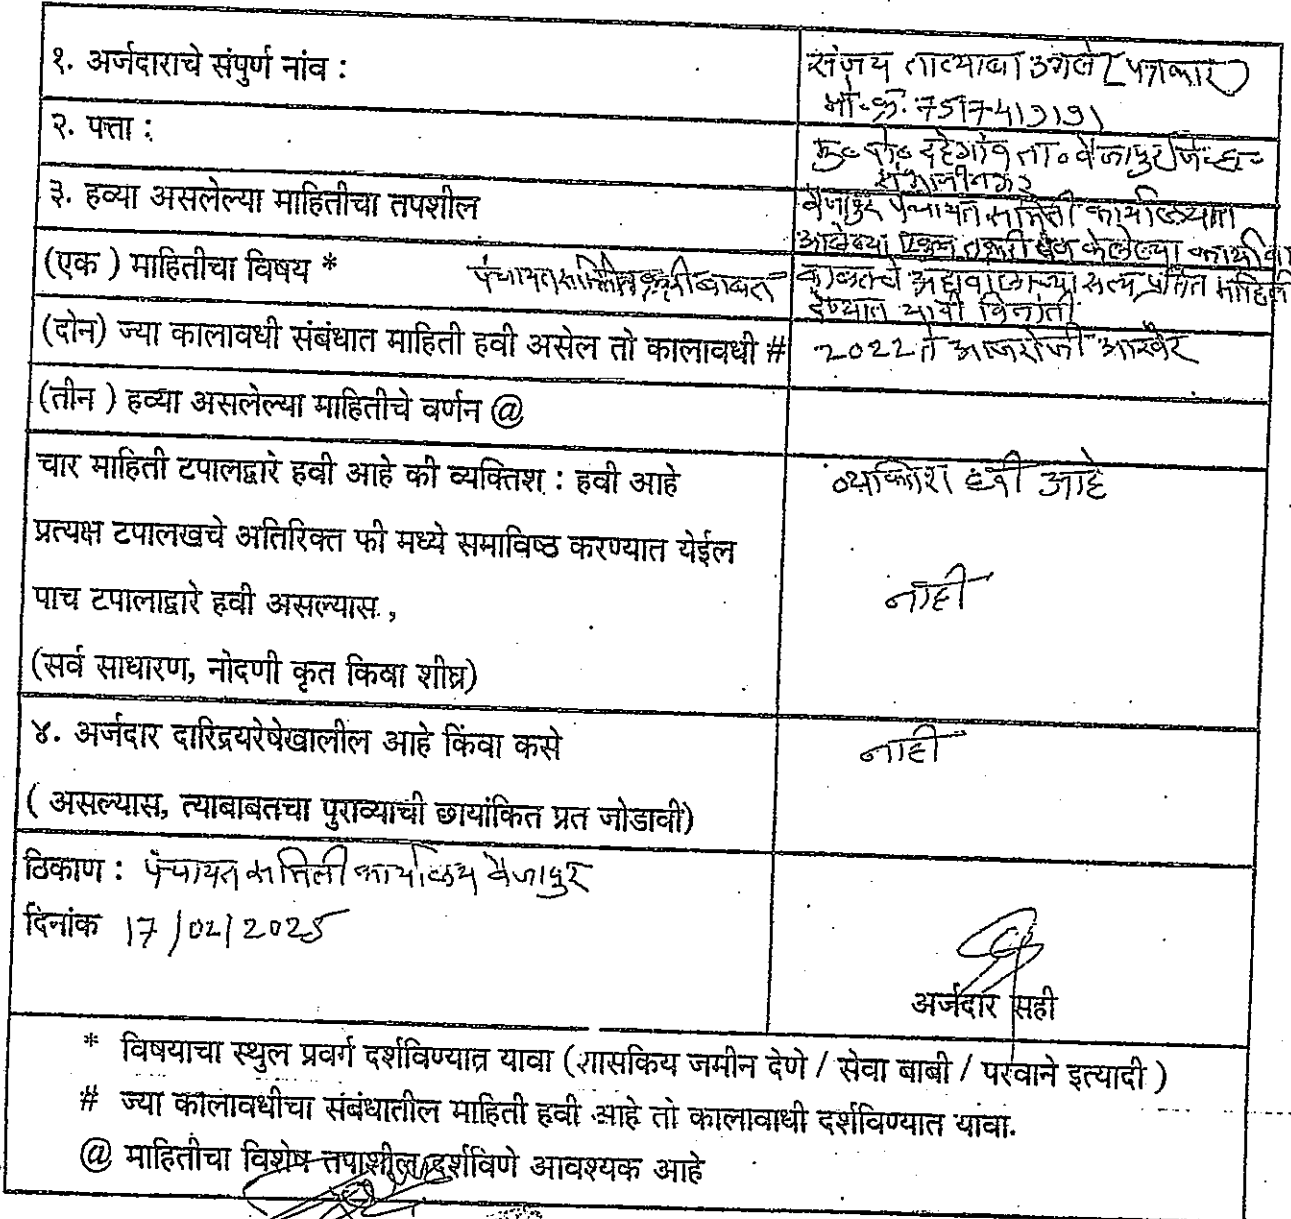 १. अर्जदाराचे संपुर्ण नांव :
संजय तात्याबा उगले (पत्रकार)
मो.क्र. 7517419191
२. पत्ता :
मु. पो. दहेगांव ता. वैजापुर जि. छ.
संभाजीनगर
३. हव्या असलेल्या माहितीचा तपशील
वैजापुर पंचायत समिती कार्यालयात
आलेल्या एकुण तक्रारी केलेल्या कार्यवा
(एक ) माहितीचा विषय * पंचायत समिती तक्रारी बाबत
अहवालाच्या सत्य प्रतित माहिती
देण्यात यावी विनंती
(दोन) ज्या कालावधी संबंधात माहिती हवी असेल तो कालावधी #
2022 ते आजरोजी आखेर
(तीन ) हव्या असलेल्या माहितीचे वर्णन @
चार माहिती टपालद्वारे हवी आहे की व्यक्तिश : हवी आहे
व्यक्तिश हवी आहे
प्रत्यक्ष टपालखचे अतिरिक्त फी मध्ये समाविष्ठ करण्यात येईल
पाच टपालाद्वारे हवी असल्यास ,
नाही
(सर्व साधारण, नोदणी कृत किषा शीघ्र)
४. अर्जदार दारिद्रयरेषेखालील आहे किंवा कसे
नाही
( असल्यास, त्याबाबतचा पुराव्याची छायांकित प्रत जोडावी)
ठिकाण : पंचायत समिती कार्यालय वैजापुर
दिनांक 17/02/2025
अर्जदार सही
* विषयाचा स्थुल प्रवर्ग दर्शविण्यात्र यावा (शासकिय जमीन देणे / सेवा बाबी / परवाने इत्यादी )
# ज्या कालावधीचा संबंधातील माहिती हवी आहे तो कालावाधी दर्शविण्यात यावा.
@ माहितीचा विशेष तपाशील दर्शविणे आवश्यक आहे